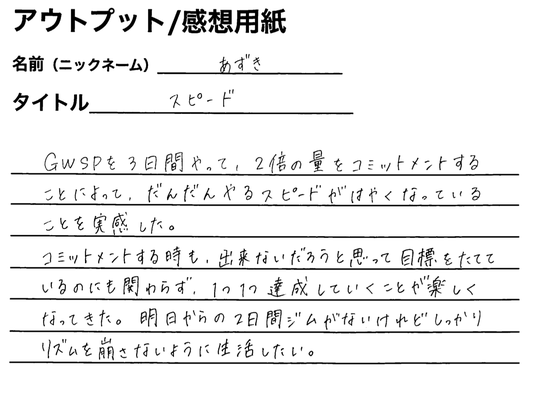 アウトプット/感想用紙
名前（ニックネーム） あずき
タイトル スピード
GWSPを3日間やって、2倍の量をコミットメントする
ことによって、だんだんやるスピードがはやくなっている
ことを実感した。
コミットメントする時も、出来ないだろうと思って目標をたてて
いるのにも関わらず、1つ1つ達成していくことが楽しく
なってきた。明日からの2日間ジムがないけれどしっかり
リズムを崩さないように生活したい。